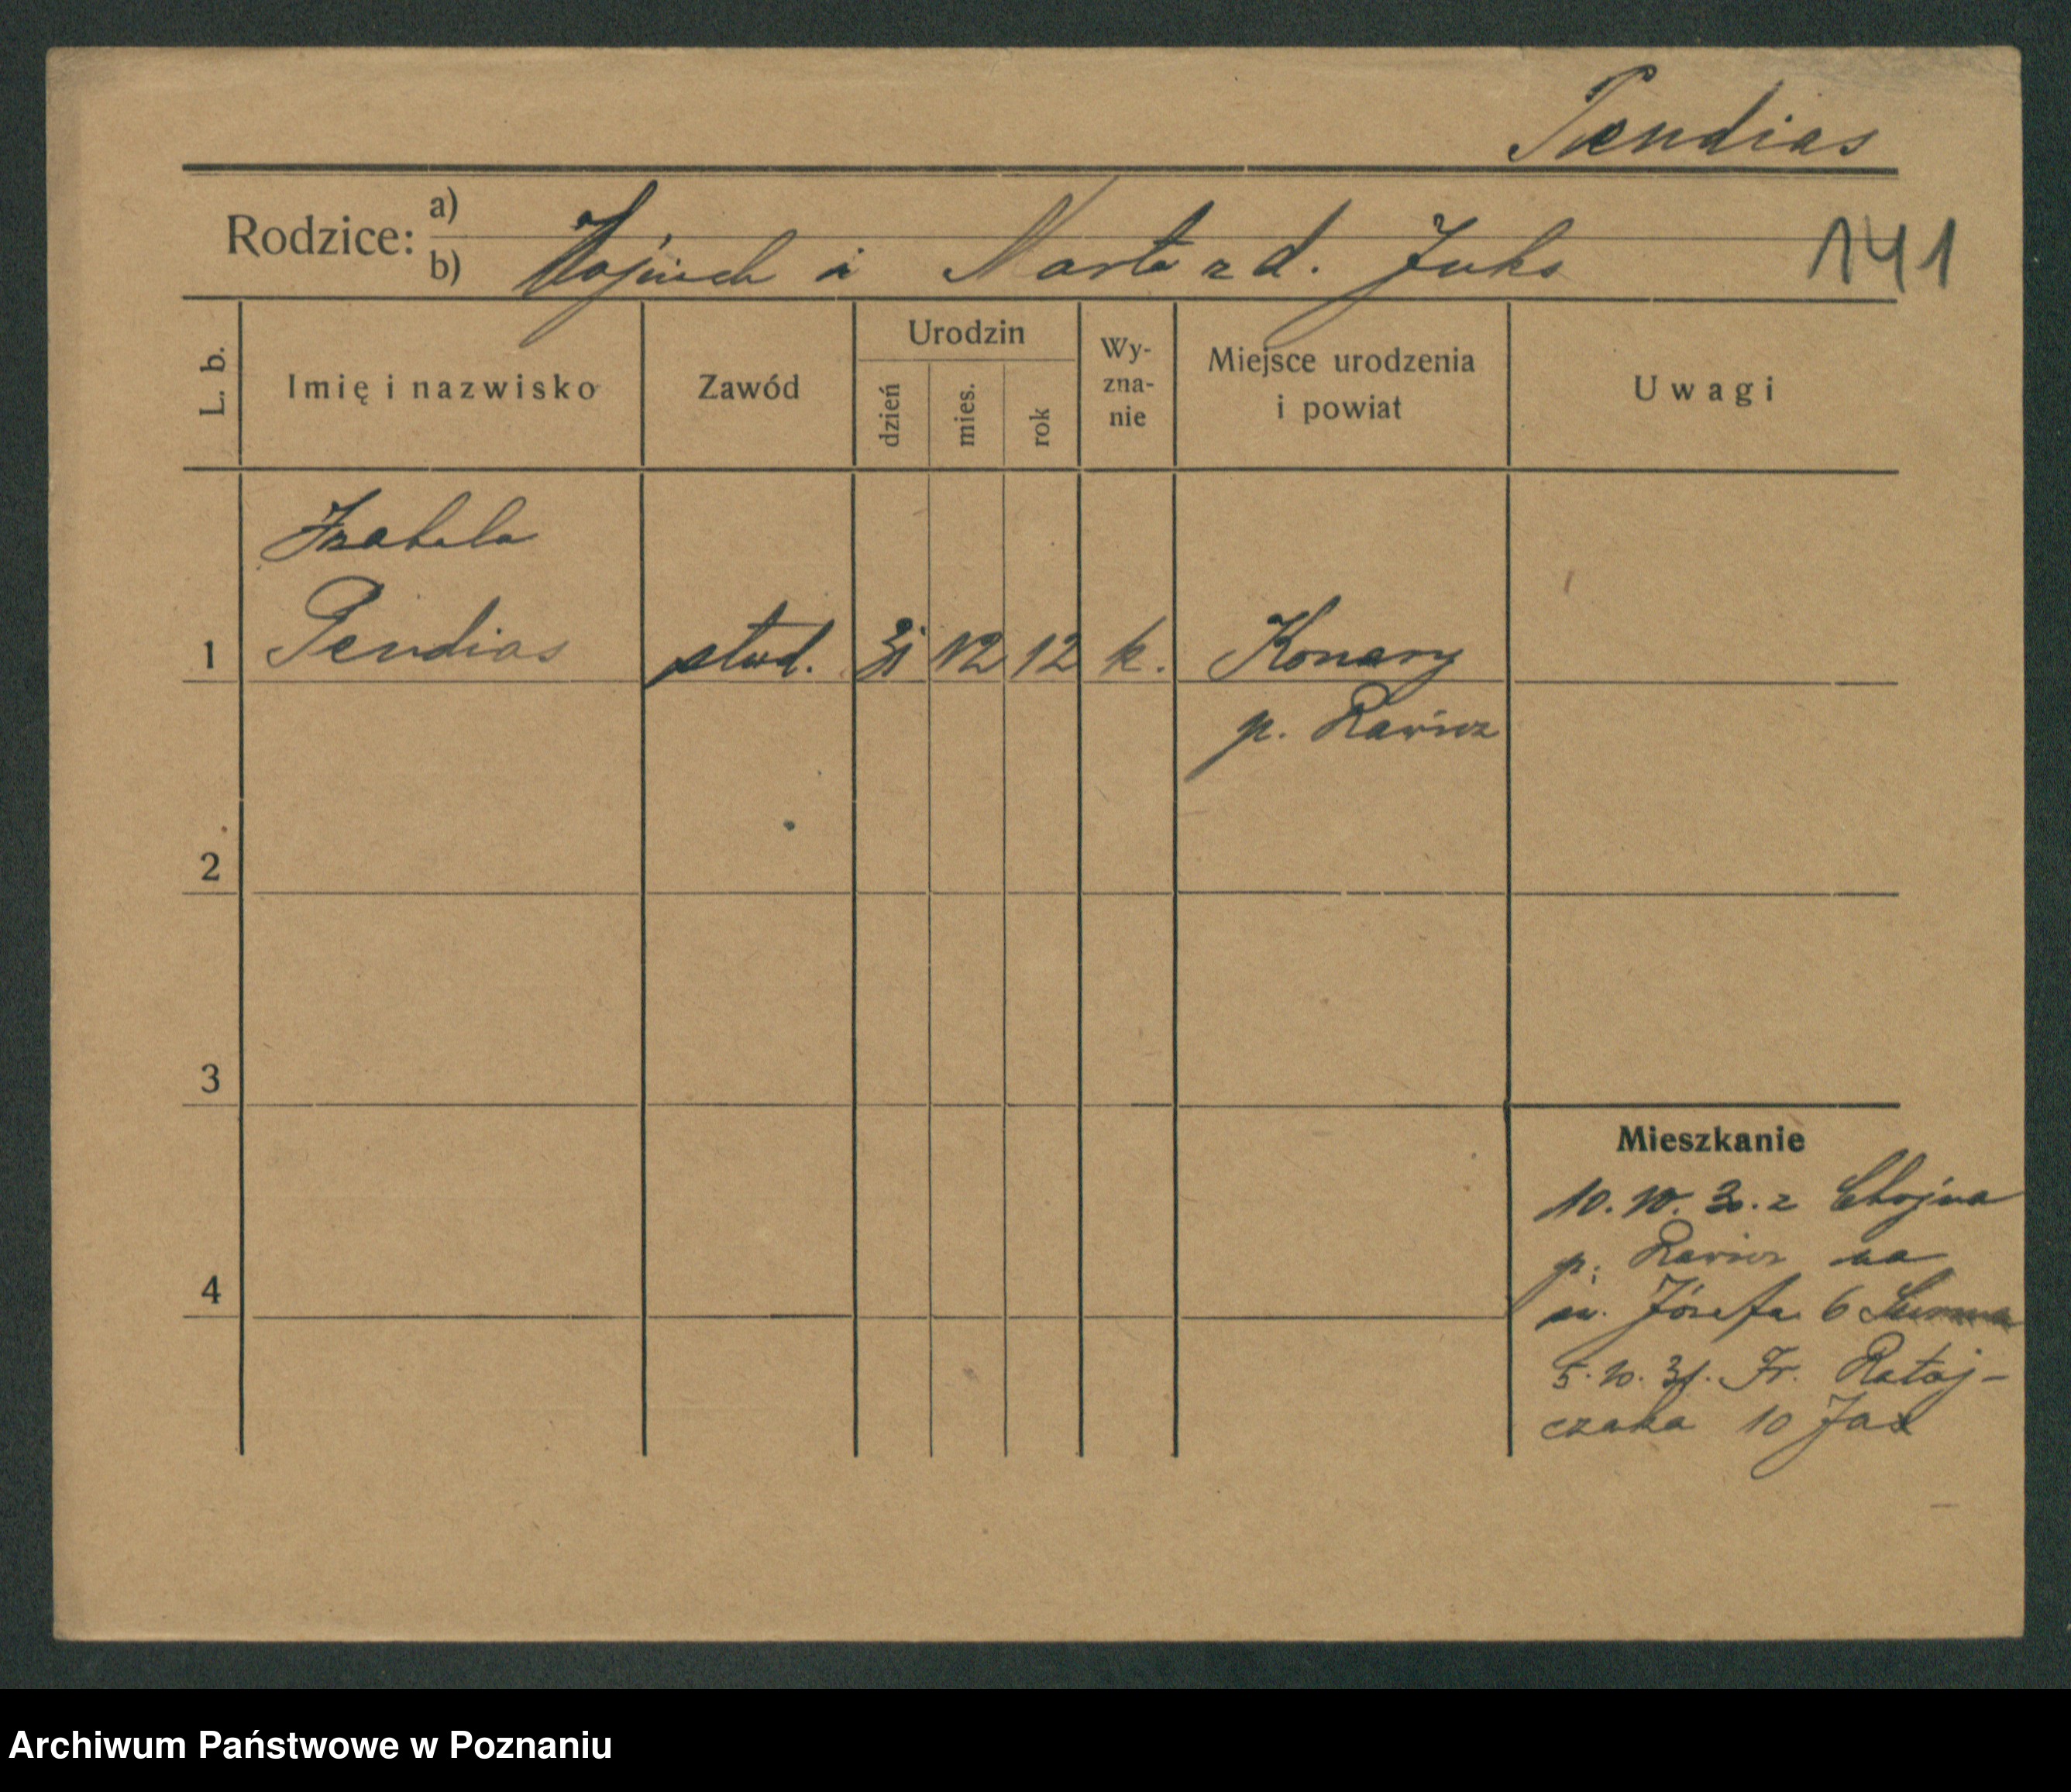 Pendias
Rodzice: a)
b) Wojciech i Marta z d. Juks
141
L. b.
Imię i nazwisko
Zawód
Urodzin
dzień
mies.
rok
Wy-
zna-
nie
Miejsce urodzenia
i powiat
Uwagi
Izabela
1 Pendias stud. 31 12 12 k. Konary
p. Rawicz
2
3
4
Mieszkanie
10. 10. 30. z Chojna
p. Rawicz na
św. Józefa 6
5. 10. 31. Fr. Rataj-
czaka 10 Jax
Archiwum Państwowe w Poznaniu